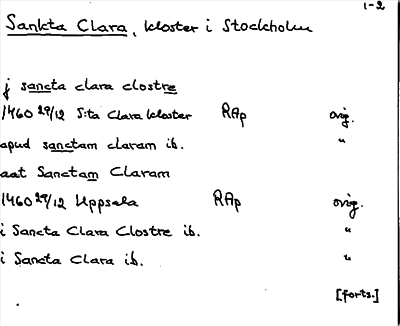 1-2
Sankta Clara, kloster i Stockholm
j sancta clara clostre
1460 29/12 S:ta Clara kloster RAp orig.
apud sanctam claram ib. "
aat Sanctam Claram
1460 29/12 Uppsala RAp orig.
i Sancta Clara Clostre ib. "
i Sancta Clara ib. "
[forts.]